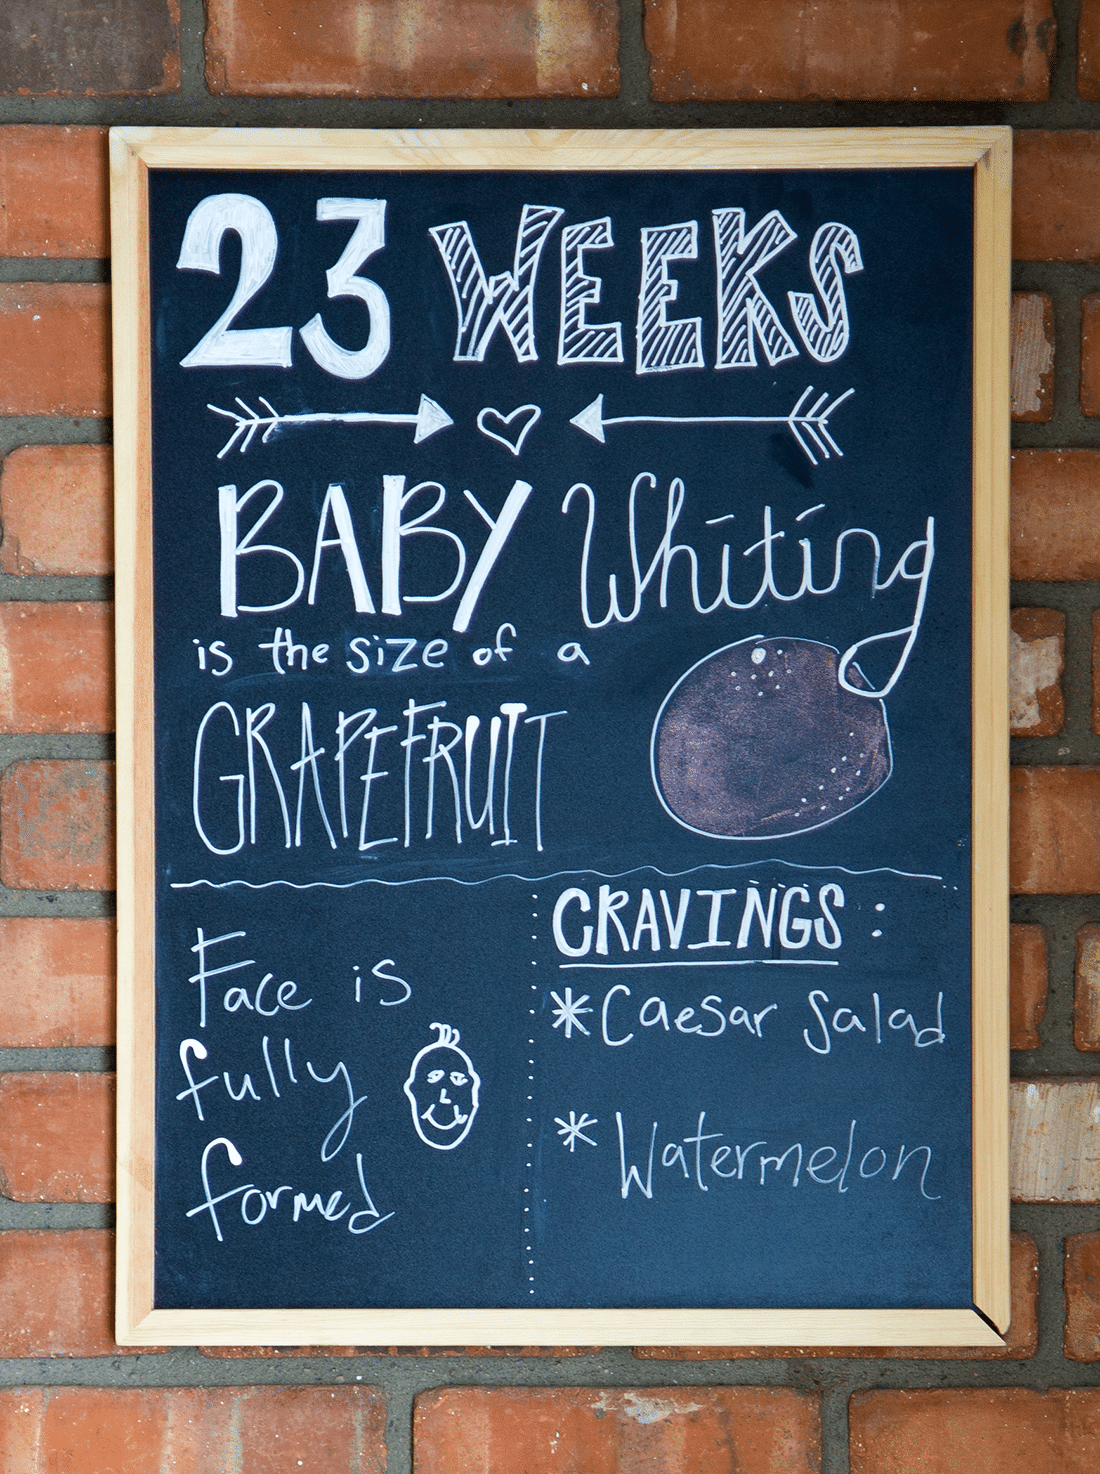 23 WEEKS
BABY Whiting
is the size of a
GRAPEFRUIT
Face is
fully
formed
CRAVINGS:
* Caesar Salad
* Watermelon